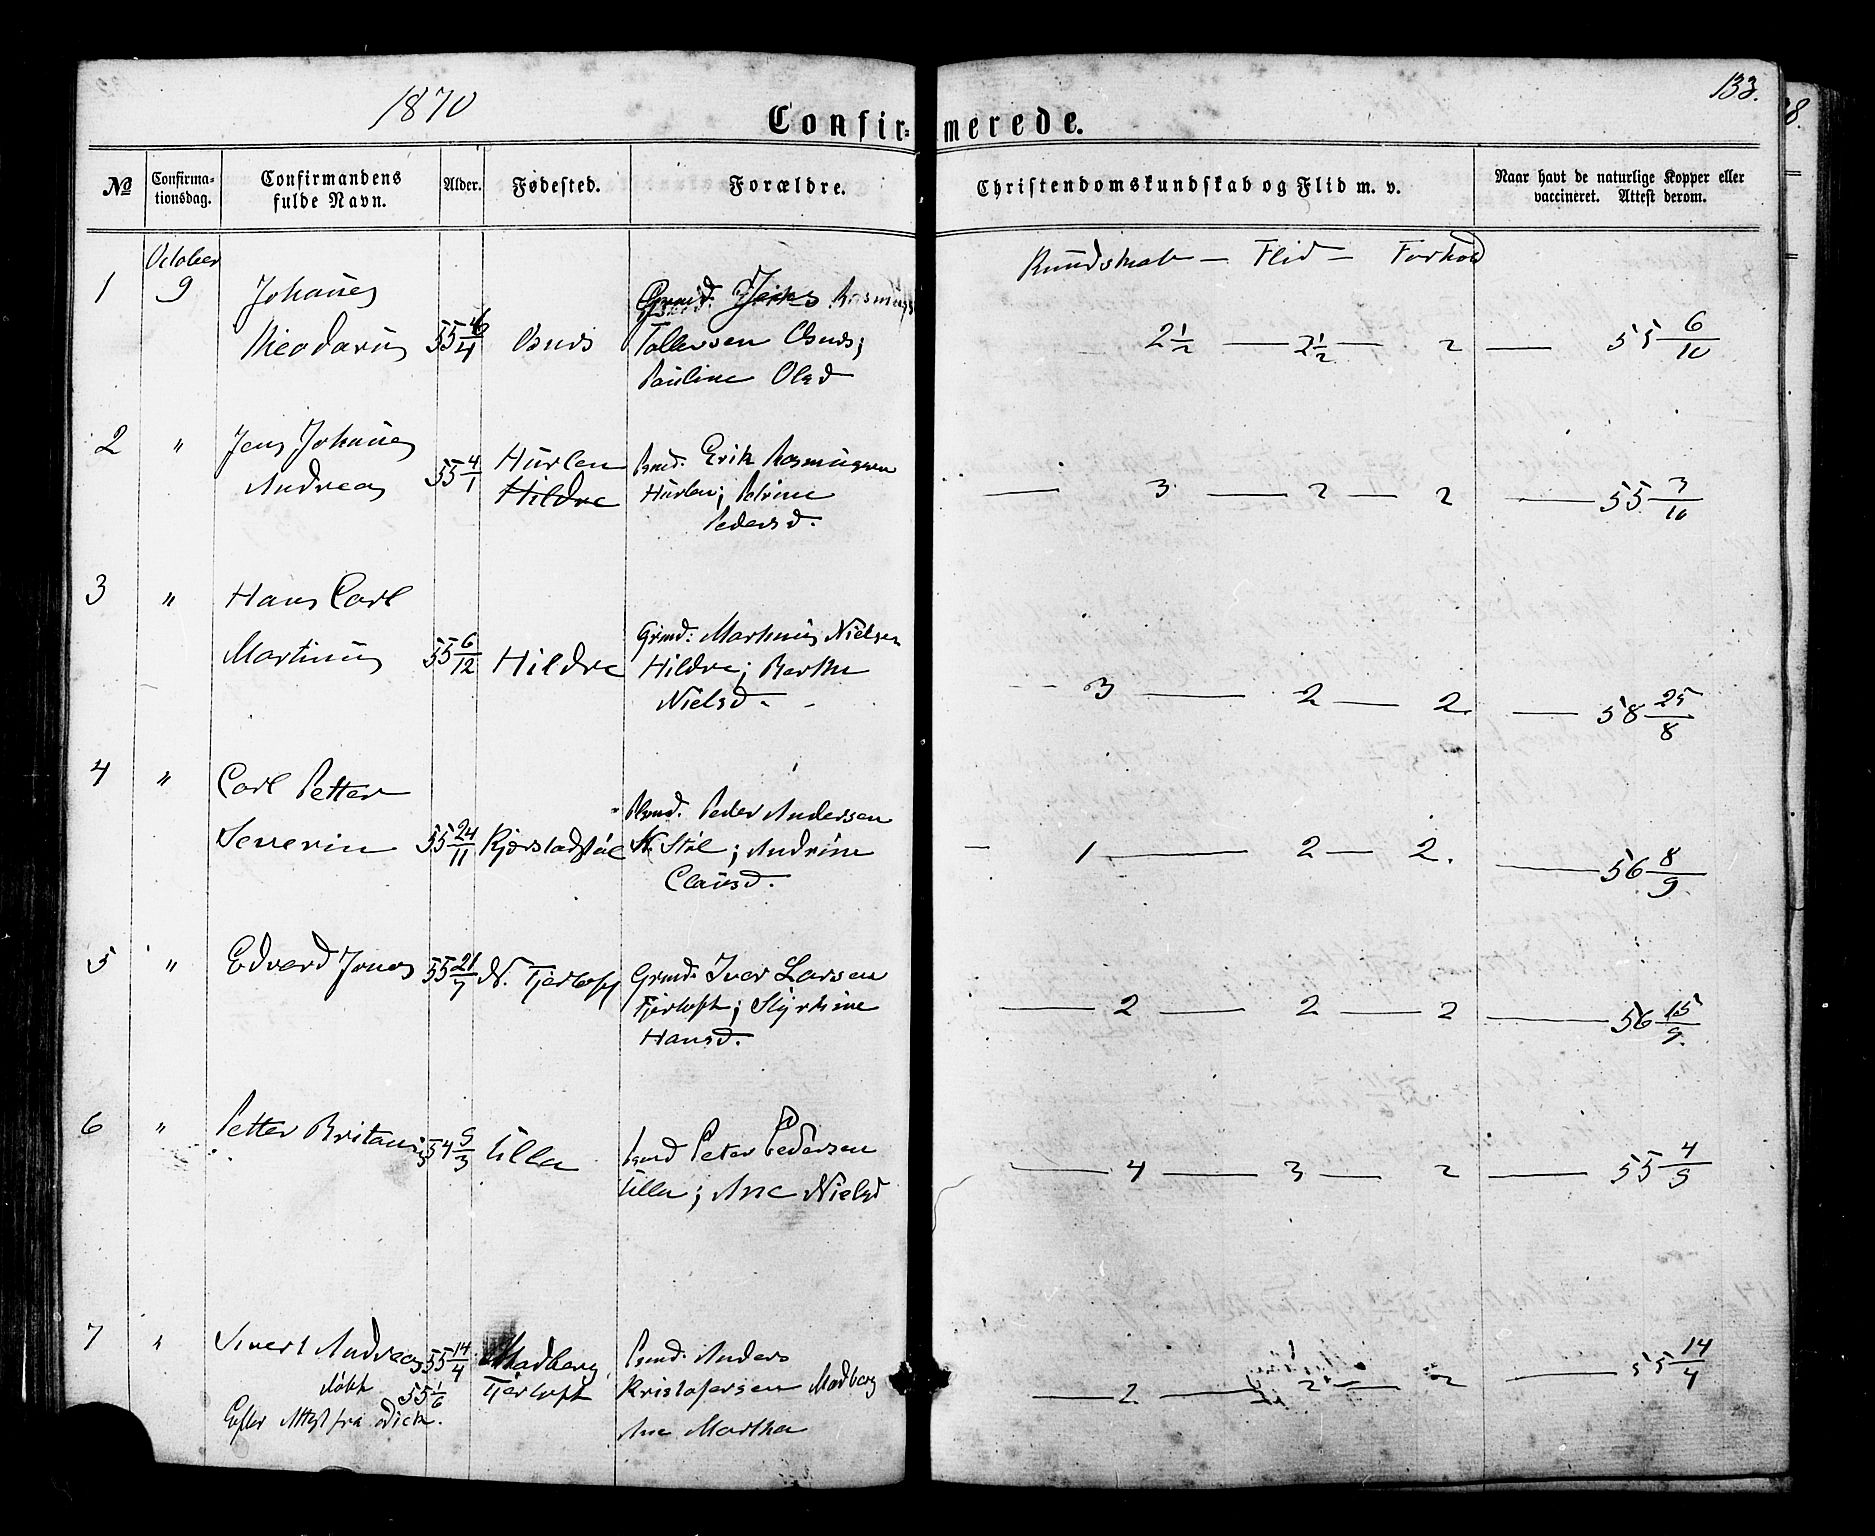 1870
133.
Confir= merede.
No
Confirma-
tionsdag.
Confirmandens
fulde Navn.
Alder.
Fødested.
Forældre.
Christendomskundskab og Flid m. v.
Naar havt de naturlige Kopper eller
vaccineret. Attest derom.
Kundskab — Flid — Forhold
October
1 9 Johannes
Theodarus 55 Osnes
Rasmus
Tollevsen Osnes;
Pauline Olsd
2½ — 2½ — 2 — 55 6/10
2 " Jens Johannes
Andreas 55 4/1 Hurlen
Hildre
Erik Rasmussen
Hurlen; Petrine
Pedersd.
— 3 — 2 — 2 — 55 3/10
3 " Hans Carl
Martinus 55 6/12 Hildre
Grmd: Martinus Nielsen
Hildre; Berthe
Nielsd.
3 — 2 — 2. — 58 25/8
4 " Carl Petter
Severin 55 24/11 Kjerstadstøl
Peder Andersen
Støl; Andrine
Clausd.
— 1 — 2 — 2. — 56 8/9
5 " Edvard Jonas 55 21/7 N. Fjørtoft
Grmd: Iver Larsen
Fjørtoft; Styrkine
Hansd.
— 2 — 2 — 2 — 56 15/9.
6 " Petter Britanus 54 9/3 Ulla
Peter Pedersen
Ulla; Ane Nielsd
— 4 — 3 — 2 — 55 4/9
7 " Sivert Andreas 55 14/4 Madberg
Fjørtoft
55 1/6
Efter Attest fra
Anders
Kristofersen Madberg
Ane Martha
— 2 — 2 — 2 — 55 14/4
8.